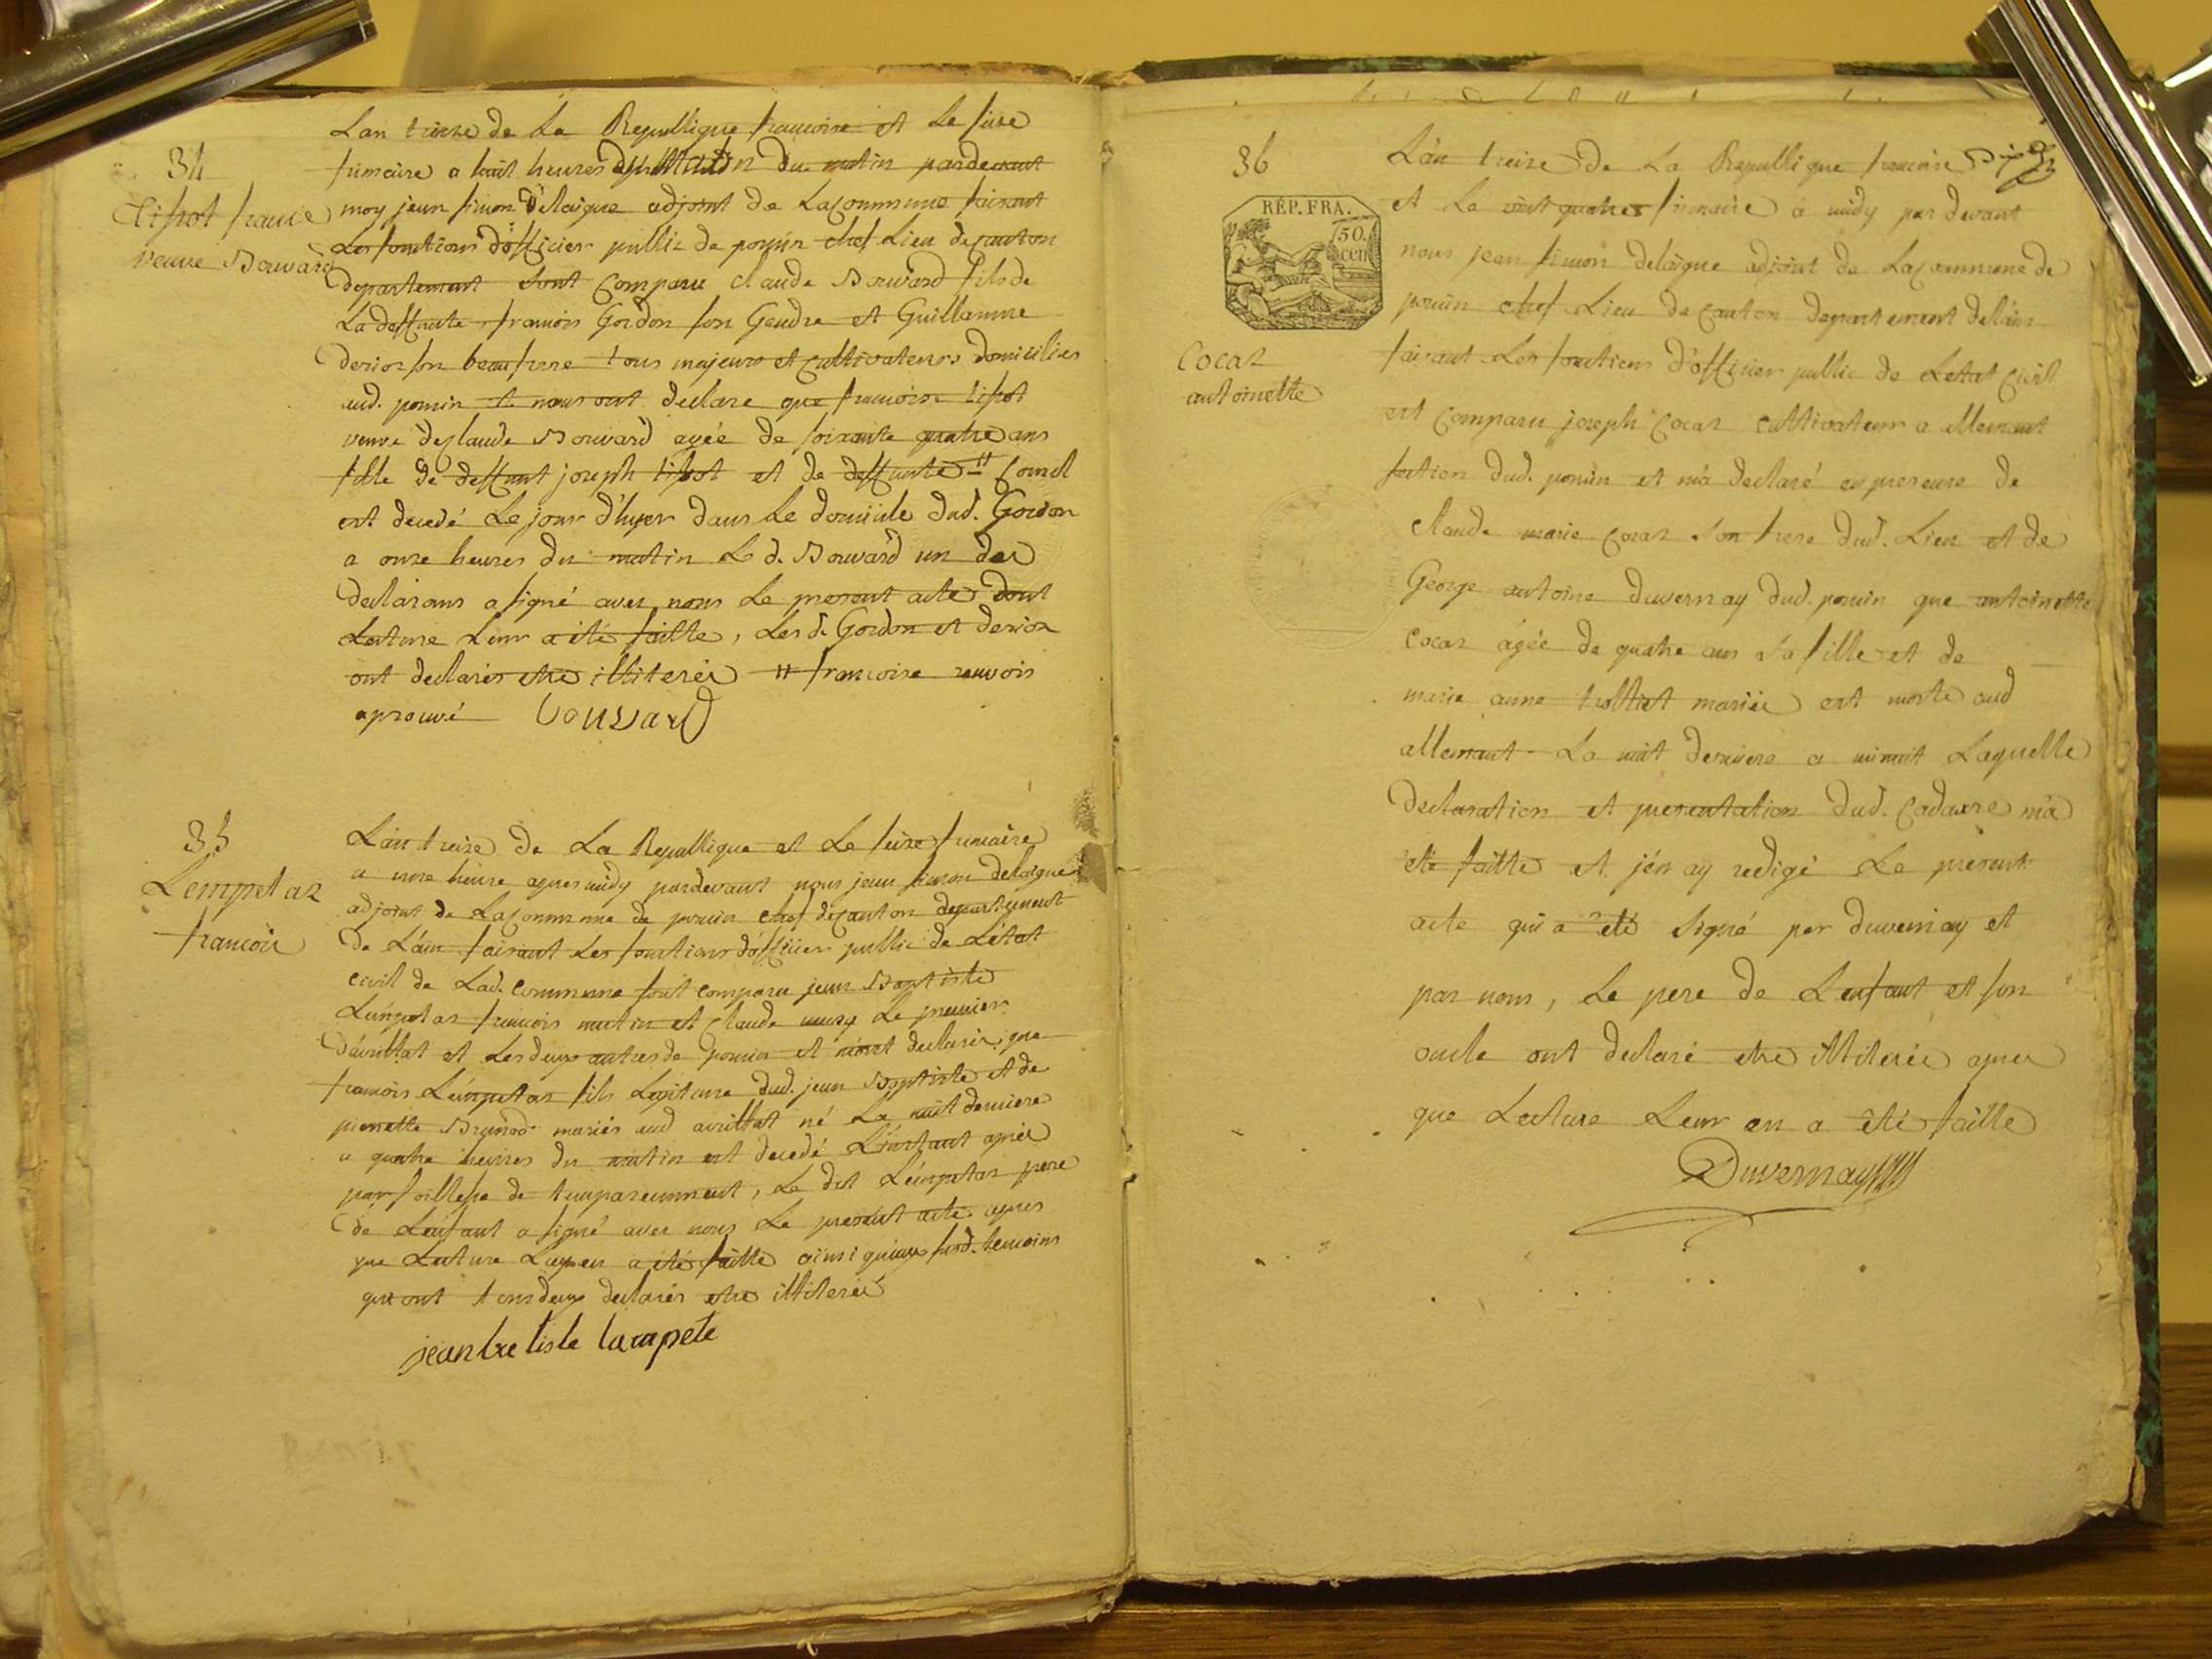 34
Tissot france
veuve Bouvard
L'an treize de La Republique francoise et Le seize
frimaire a huit heures du matin pardevant
moy jean simon Delaigue adjoint de La Commune faisant
Les fonctions d'officier public de pouin chef Lieu de canton
departement sont Comparu claude Bouvard fils de
La deffunte francois Gordon son Gendre et Guillaume
derior son beaufrere tous majeurs et cultivateurs domicilies
aud. pouin et nous ont declare que francoise tissot
veuve de Claude Bouvard agée de soixante quatre ans
fille de deffunt joseph tissot et de deffunte " Cornel
est decedé Le jour d'hyer dans Le domicile dud. Gordon
a onze heures du matin Le d. Bouvard un des
declarans a signé avec nous Le present acte dont
Lecture Leur a été faitte, Les d. Gordon et derior
ont declarés etre illiterés " francoise renvois
aprouvé Bouvard
35
Lempetaz
francois
L'an treize de La Republique et Le seize frimaire
a une heure apres midy pardevant nous jean simon delaigue
adjoint de La Commune de pouin chef de canton departement
de L'ain faisant Les fonctions d'officier public de L'état
civil de Lad. Commune sont comparu jean Baptiste
Lempetaz francois mutin et Claude musy Le premier
d'avrillat et Les deux autres de pouin et m'ont declarés que
francois Lempetaz fils Legitime dud. jean Baptiste et de
pierrette Brunod mariés aud avrillat né La nuit derniere
a quatre heures du matin est decedé L'instant après
par foiblesse de temparemment, Le dit Lempetaz pere
de L'enfant a signé avec nous Le present acte apres
que Lecture Luy en a été faitte ainsi qu'aux susd. temoins
qui ont tous deux declarés etre illiterés
jean batiste lanapete
36
RÉP. FRA.
50.
cen
Cocaz
antoinette
L'an treize de La Republique francoise
et Le vint quatre frimaire a midy par devant
nous jean simon delaigue adjoint de La Commune de
pouin chef Lieu de Canton departement de L'ain
faisant Les fonctions d'officier public de L'etat Civil
est Comparu joseph Cocaz cultivateur a allemant
section dud. pouin et m'a declaré en presence de
claude marie Cocaz son frere dud. Lieu et de
George antoine duvernay dud. pouin que antoinette
cocaz agée de quatre ans sa fille et de
marie anne trolliet mariés est morte aud
allemant La nuit derniere a minuit Laquelle
declaration et presentation dud. Cadavre m'a
été faitte et j'en ay redigé Le present
acte qui a été signé par duvernay et
par nous, Le pere de L'enfant et son
oncle ont declaré etre illiterés apres
que Lecture Leur en a été faitte
Duvernay